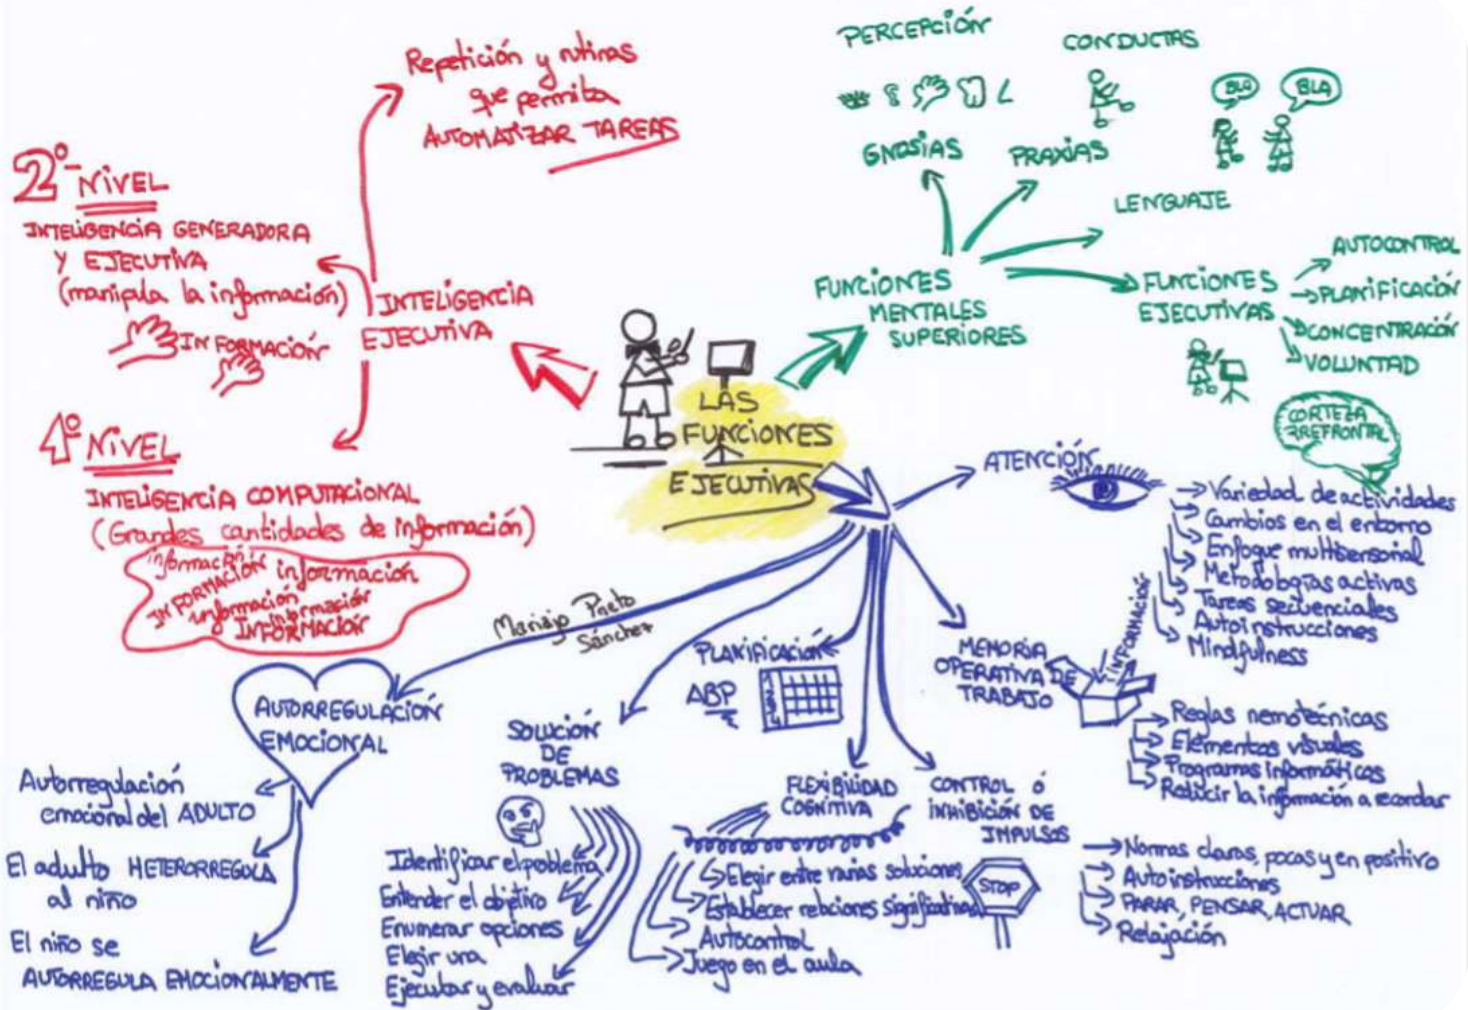 Repetición y rutinas
que permita
AUTOMATIZAR TAREAS
2º NIVEL
INTELIGENCIA GENERADORA
Y EJECUTIVA
(manipula la información)
INFORMACIÓN
INTELIGENCIA
EJECUTIVA
1º NIVEL
INTELIGENCIA COMPUTACIONAL
(Grandes cantidades de información)
información
INFORMACIÓN
información
información
información
INFORMACIÓN
PERCEPCIÓN
GNOSIAS
CONDUCTAS
PRAXIAS
BLA
BLA
LENGUAJE
FUNCIONES
MENTALES
SUPERIORES
FUNCIONES
EJECUTIVAS
AUTOCONTROL
PLANIFICACIÓN
CONCENTRACIÓN
VOLUNTAD
CORTEZA
PREFRONTAL
LAS
FUNCIONES
EJECUTIVAS
ATENCIÓN
Variedad de actividades
Cambios en el entorno
Enfoque multisensorial
Metodologías activas
Tareas secuenciales
Autoinstrucciones
Mindfulness
MEMORIA
OPERATIVA DE
TRABAJO
INFORMACIÓN
Reglas nemotécnicas
Elementos visuales
Programas informáticos
Reducir la información a recordar
CONTROL Ó
INHIBICIÓN DE
IMPULSOS
STOP
Normas claras, pocas y en positivo
Autoinstrucciones
PARAR, PENSAR, ACTUAR
Relajación
FLEXIBILIDAD
COGNITIVA
Elegir entre varias soluciones
Establecer relaciones significativas
Autocontrol
Juego en el aula
PLANIFICACIÓN
ABP
SOLUCIÓN
DE
PROBLEMAS
Identificar el problema
Entender el objetivo
Enumerar opciones
Elegir una
Ejecutar y evaluar
Prieto
Sánchez
AUTORREGULACIÓN
EMOCIONAL
Autorregulación
emocional del ADULTO
El adulto HETERORREGULA
al niño
El niño se
AUTORREGULA EMOCIONALMENTE